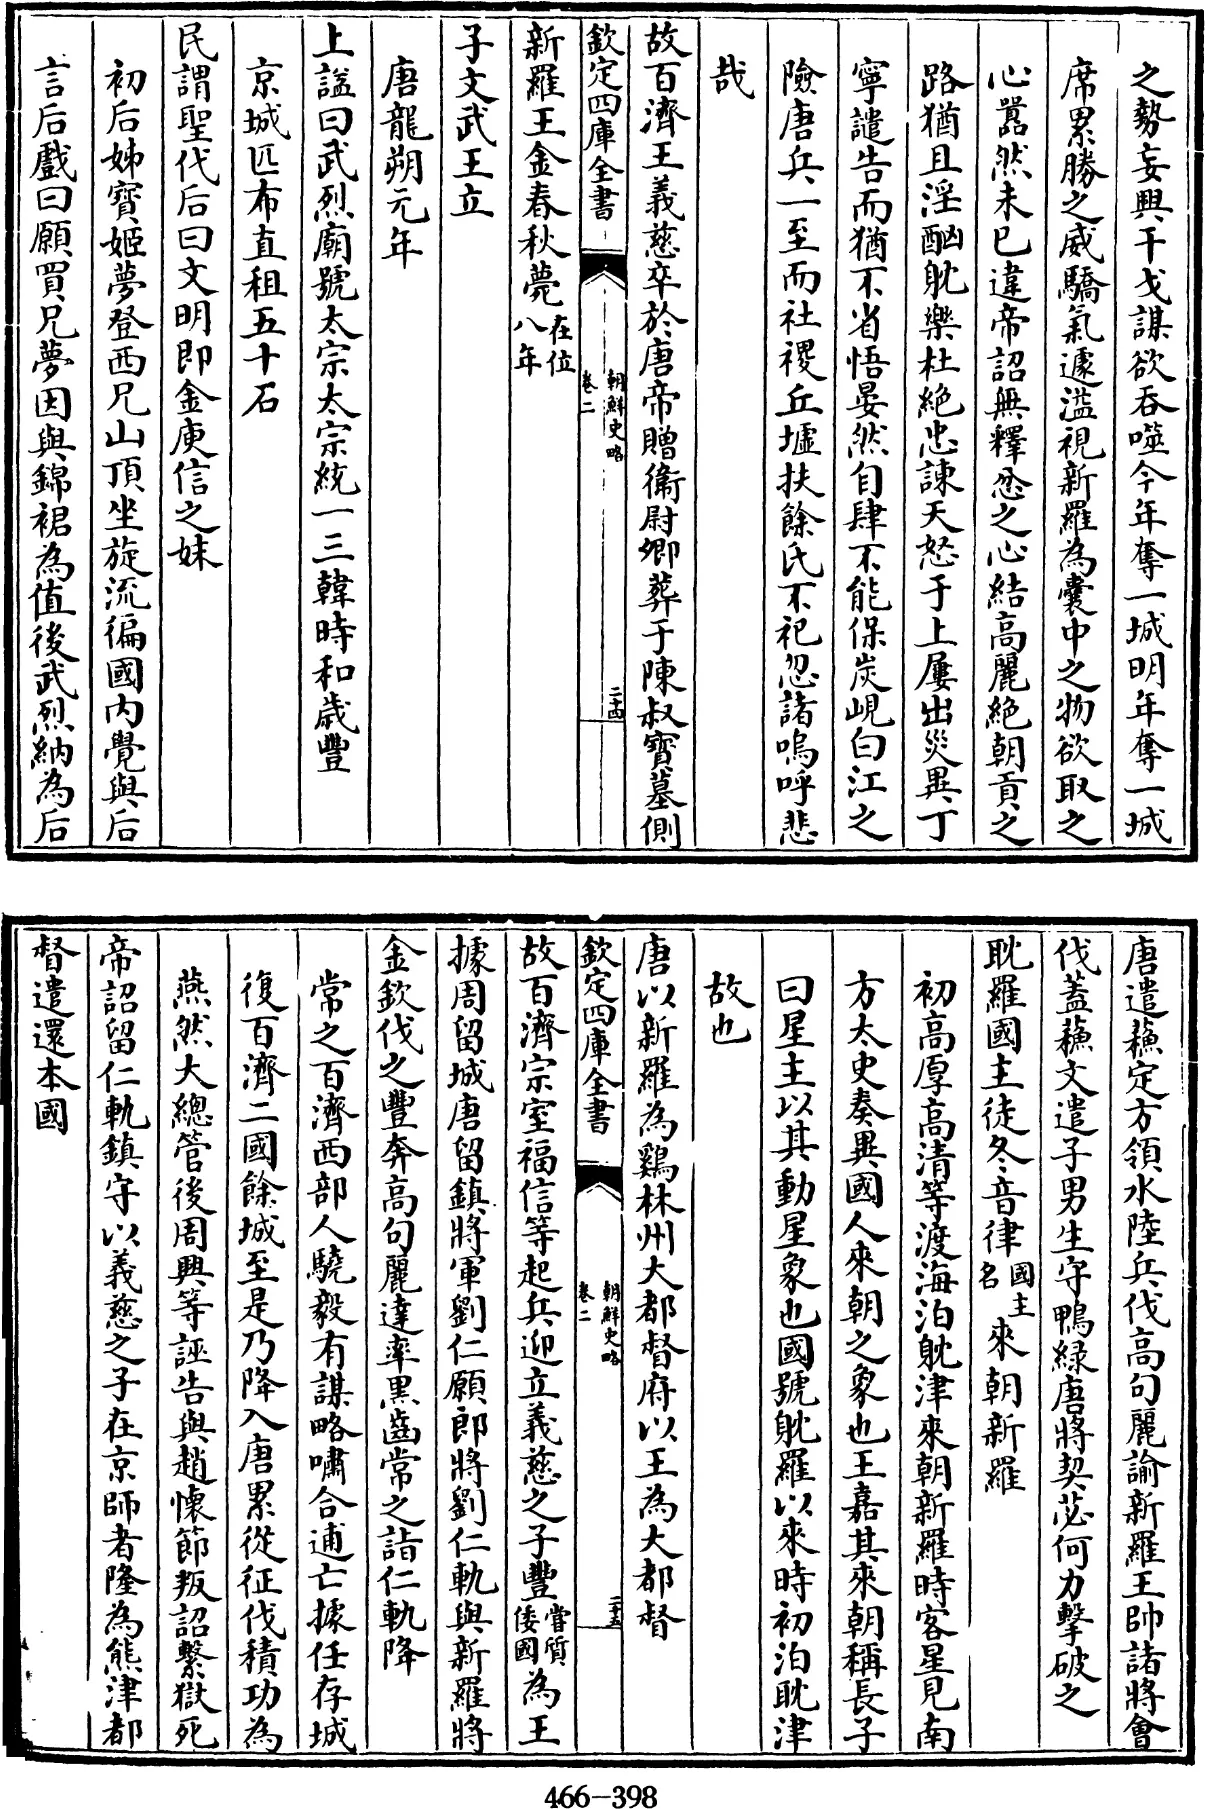 之勢妄興干戈謀欲吞噬今年奪一城明年奪一城
席累勝之威驕氣遽溢視新羅為囊中之物欲取之
心囂然未已違帝詔無釋忿之心結高麗絶朝貢之
路猶且淫酗躭樂杜絶忠諫天怒于上屢出災異丁
寧譴告而猶不省悟晏然自肆不能保炭峴白江之
險唐兵一至而社稷丘墟扶餘氏不祀忽諸嗚呼悲
哉
故百濟王義慈卒於唐帝贈衛尉卿葬于陳叔寳墓側
欽定四庫全書 朝鮮史略 卷二 二十四
新羅王金春秋薨在位八年
子文武王立
唐龍朔元年
上諡曰武烈廟號太宗太宗統一三韓時和歳豐
京城匹布直租五十石
民謂聖代后曰文明即金庾信之妹
初后姊寳姬夢登西兄山頂坐旋流徧國内覺與后
言后戲曰願買兄夢因與錦裙為值後武烈納為后
唐遣蘓定方領水陸兵伐高句麗諭新羅王帥諸將會
伐蓋蘓文遣子男生守鴨緑唐將契苾何力擊破之
耽羅國主徒冬音律國主名來朝新羅
初高厚高清等渡海泊躭津來朝新羅時客星見南
方太史奏異國人來朝之象也王嘉其來朝稱長子
曰星主以其動星象也國號躭羅以來時初泊耽津
故也
唐以新羅為鷄林州大都督府以王為大都督
欽定四庫全書 朝鮮史略 卷二 二十五
故百濟宗室福信等起兵迎立義慈之子豐嘗質倭國為王
據周留城唐留鎮將軍劉仁願郎將劉仁軌與新羅將
金欽伐之豐奔高句麗達率黒齒常之詣仁軌降
常之百濟西部人驍毅有謀略嘯合逋亡據任存城
復百濟二國餘城至是乃降入唐累從征伐積功為
燕然大總管後周興等誣告與趙懷節叛詔繫獄死
帝詔留仁軌鎮守以義慈之子在京師者隆為熊津都
督遣還本國
466-398